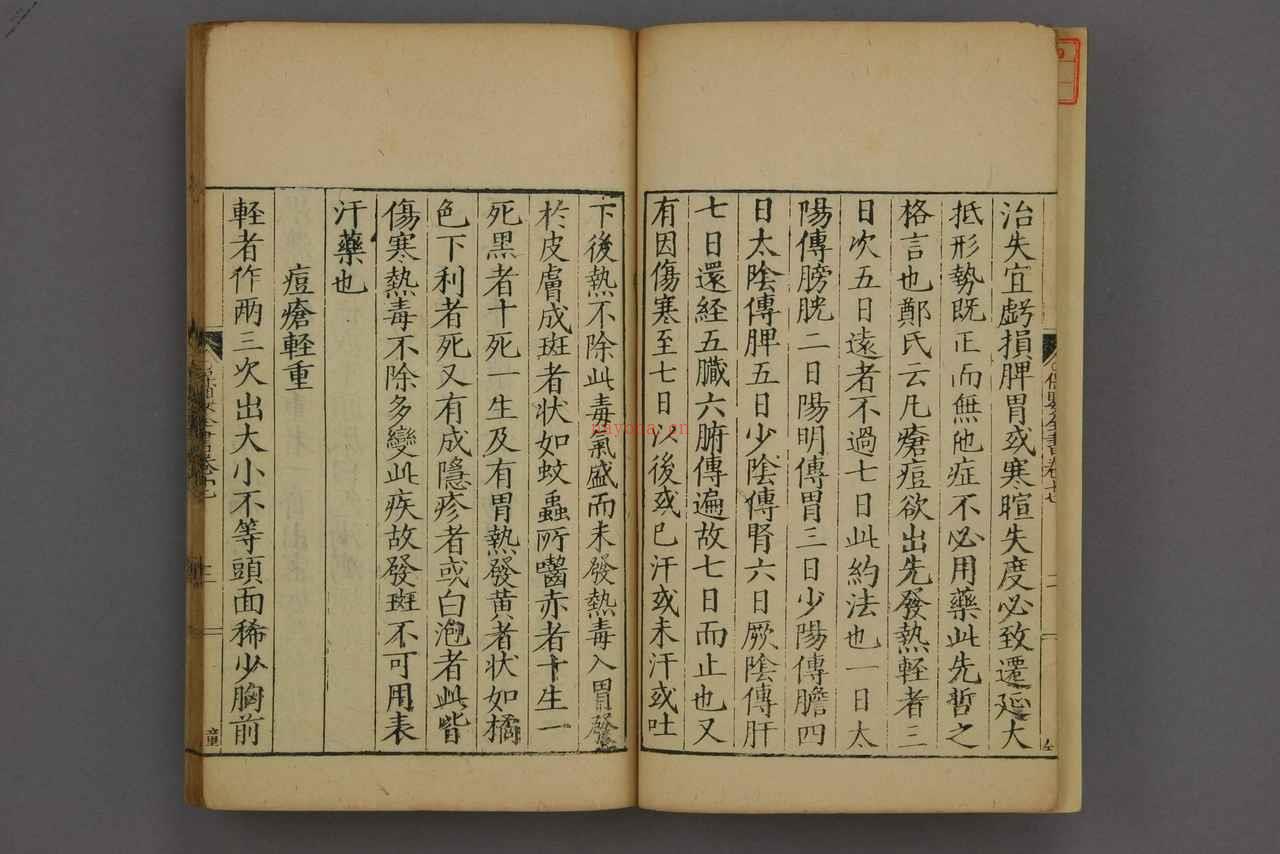 治失宜虧損脾胃或寒暄失度必致遷延大
抵形勢既正而無他症不必用藥此先哲之
格言也鄭氏云凡瘡痘欲出先發熱輕者三
日次五日遠者不過七日此約法也一日太
陽傳膀胱二日陽明傳胃三日少陽傳膽四
日太陰傳脾五日少陰傳腎六日厥陰傳肝
七日還経五臟六腑傳遍故七日而止也又
有因傷寒至七日以後或已汗或未汗或吐
下後熱不除此毒氣盛而未發熱毒入胃發
於皮膚成斑者狀如蚊蟲所嚙赤者十生一
死黑者十死一生及有胃熱發黃者狀如橘
色下利者死又有成隱疹者或白泡者此皆
傷寒熱毒不除多變此疾故發斑不可用表
汗藥也
痘瘡輕重
輕者作兩三次出大小不等頭面稀少胸前
nayona.cn